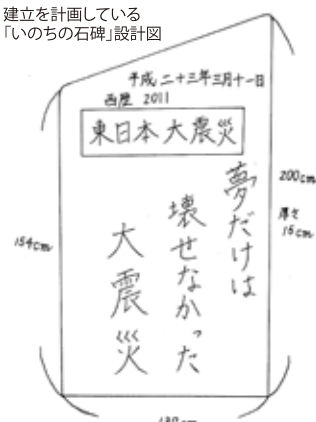 建立を計画している
「いのちの石碑」設計図
平成二十三年三月十一日
西歴 2011
東日本大震災
夢だけは
壊せなかった
大震災
154cm
200cm
厚さ
15cm